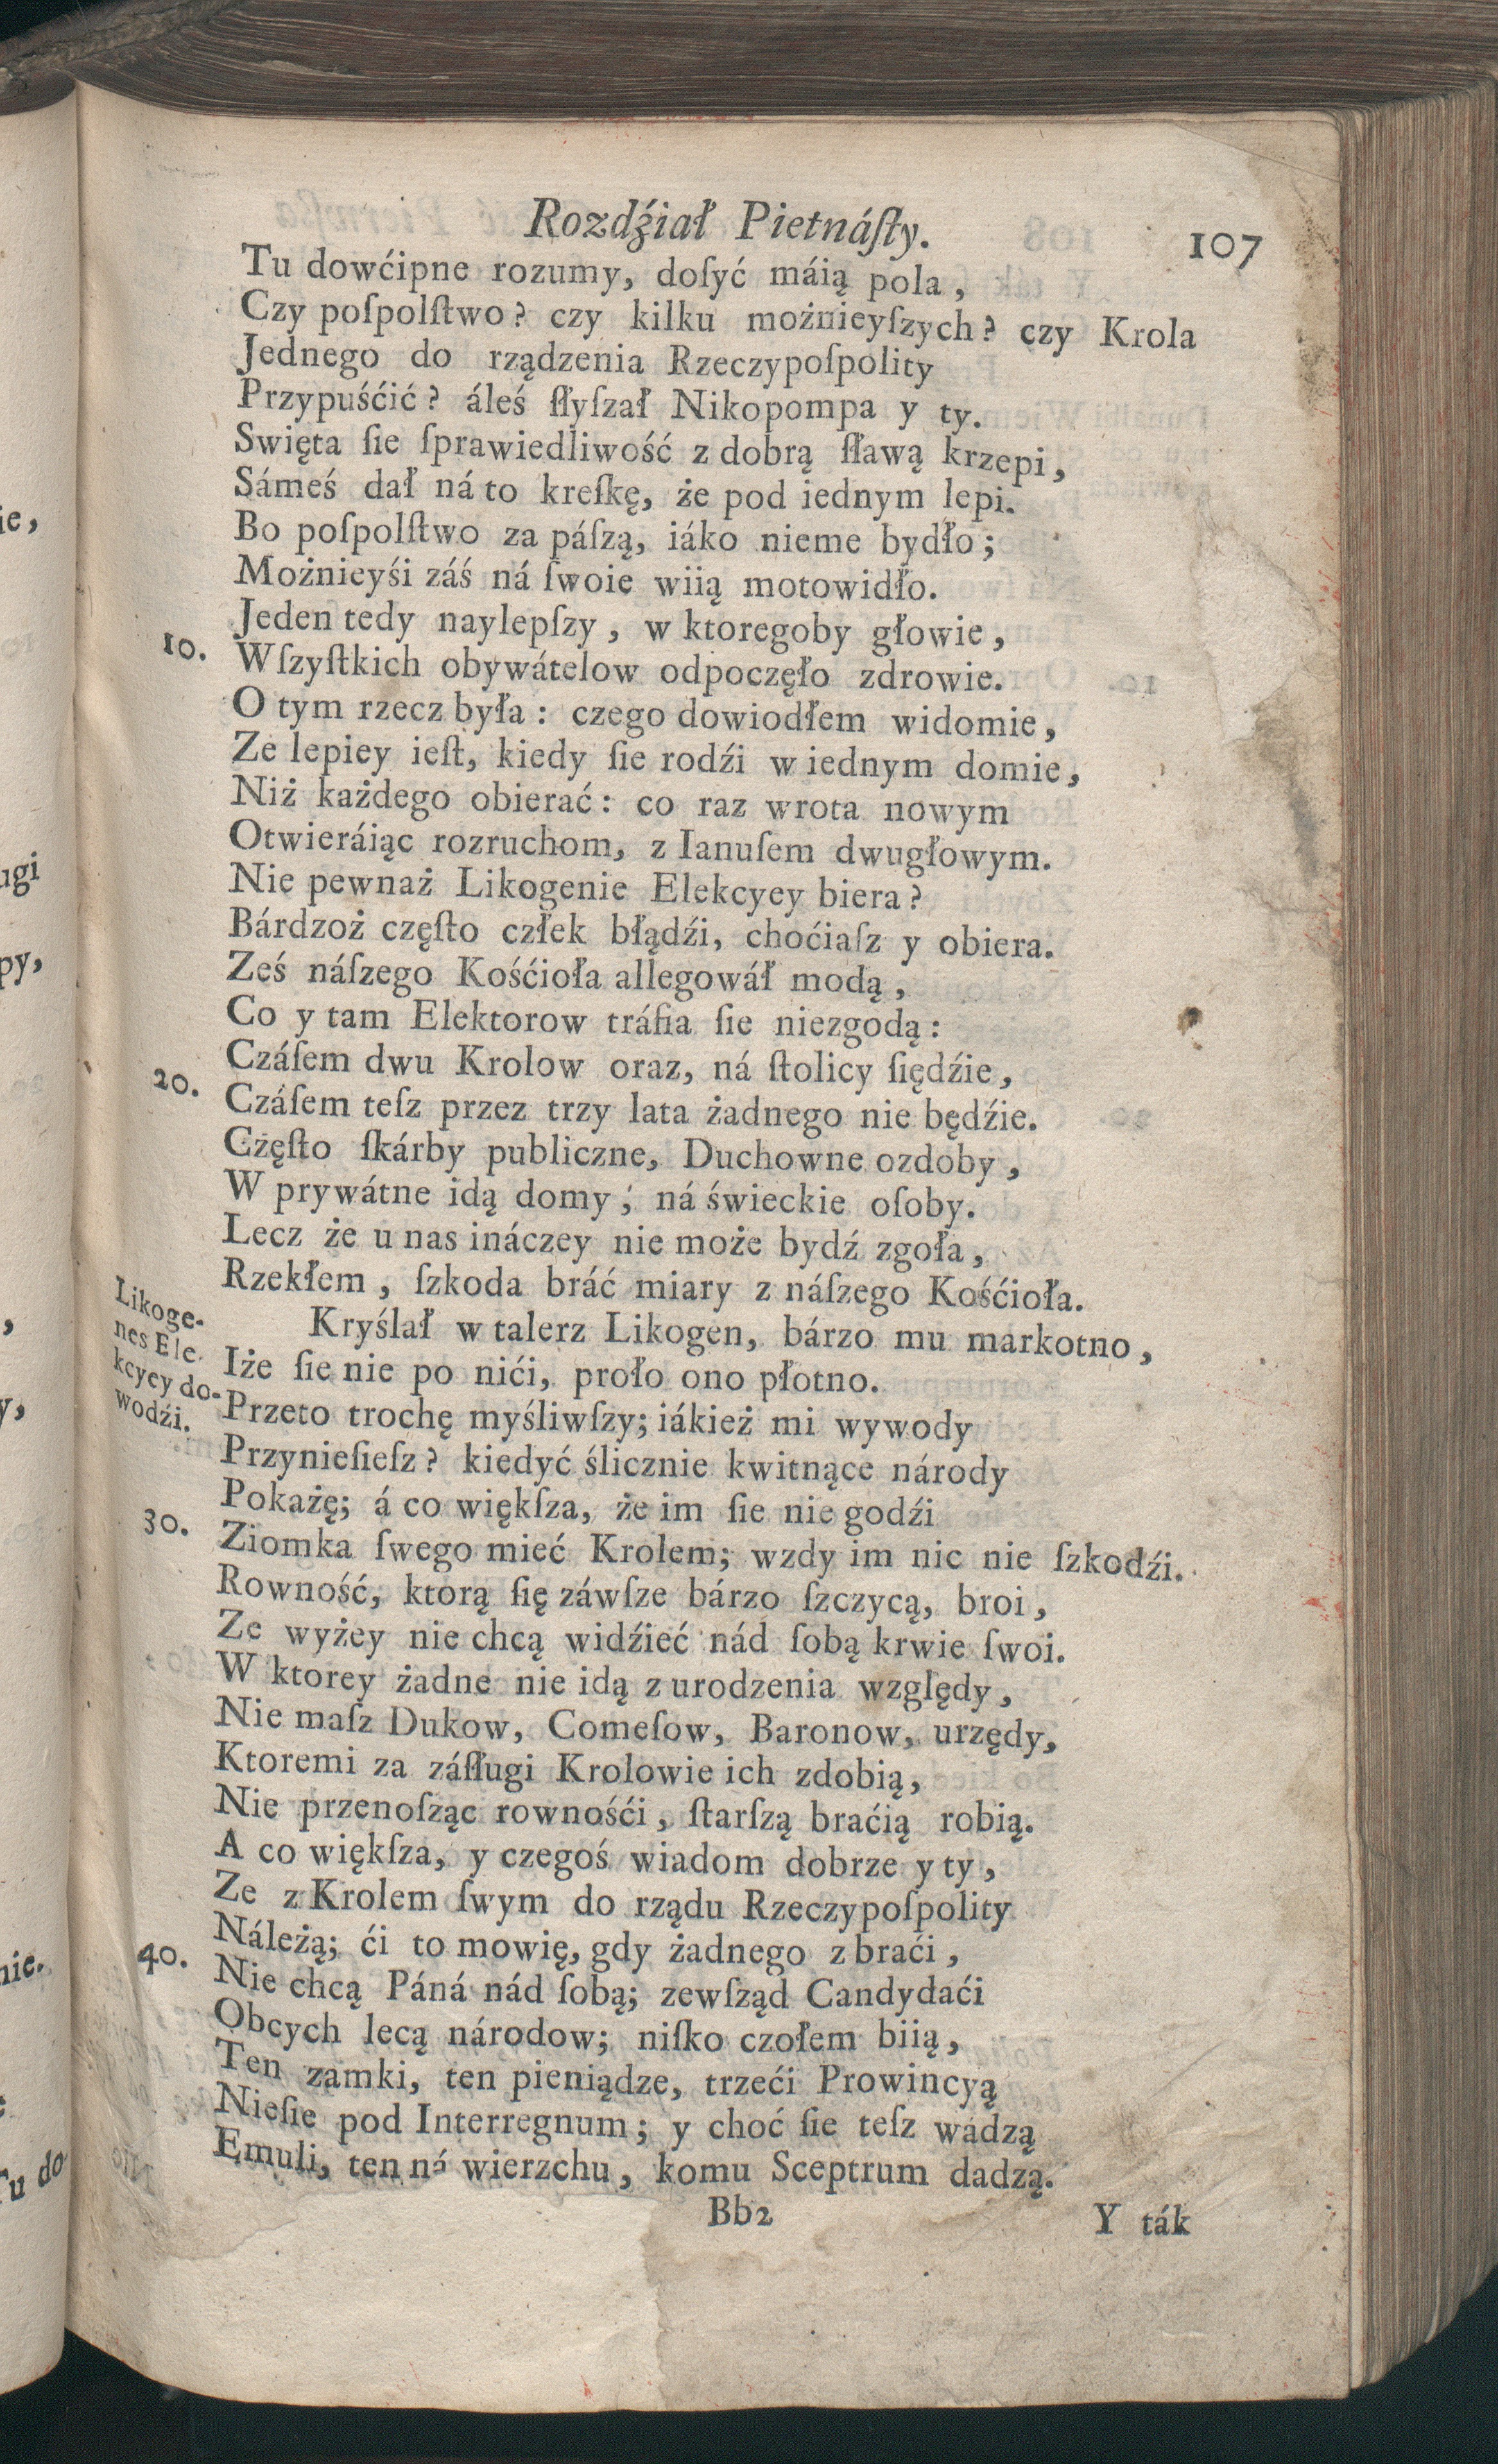 Rozdźiał Pietnáſty. 107
Tu dowćipne rozumy, doſyć máią pola,
Czy poſpolſtwo? czy kilku możnieyſzych? czy Krola
Jednego do rządzenia Rzeczypoſpolity
Przypuśćić? áleś ſłyſzał Nikopompa y ty.
Swięta ſie ſprawiedliwość z dobrą ſławą krzepi,
Sámeś dał ná to kreſkę, że pod iednym lepi.
Bo poſpolſtwo za páſzą, iáko nieme bydło;
Możnieyśi záś ná ſwoie wiią motowidło.
Jeden tedy naylepſzy, w ktoregoby głowie,
10. Wſzyſtkich obywátelow odpoczęło zdrowie.
O tym rzecz była: czego dowiodłem widomie,
Ze lepiey ieſt, kiedy ſie rodźi w iednym domie,
Niż każdego obierać: co raz wrota nowym
Otwieráiąc rozruchom, z Ianuſem dwugłowym.
Nie pewnaż Likogenie Elekcyey biera?
Bárdzoż częſto człek błądźi, choćiaſz y obiera.
Ześ náſzego Kośćioła allegowáł modą,
Co y tam Elektorow tráfia ſie niezgodą:
Czáſem dwu Krolow oraz, ná ſtolicy ſiędźie,
20. Czáſem teſz przez trzy lata żadnego nie będźie.
Częſto ſkárby publiczne, Duchowne ozdoby,
W prywátne idą domy; ná świeckie oſoby.
Lecz że u nas ináczey nie może bydź zgoła,
Rzekłem, ſzkoda bráć miary z náſzego Kośćioła.
Likoge-
nes Ele-
kcyey do-
wodźi.
Kryślał w talerz Likogen, bárzo mu markotno,
Iże ſie nie po nići, proło ono płotno.
Przeto trochę myśliwſzy; iákież mi wywody
Przynieſieſz? kiedyć ślicznie kwitnące národy
Pokażę; á co więkſza, że im ſie nie godźi
30. Ziomka ſwego mieć Krolem; wzdy im nic nie ſzkodźi.
Rowność, ktorą ſię záwſze bárzo ſzczycą, broi,
Ze wyżey nie chcą widźieć nád ſobą krwie ſwoi.
W ktorey żadne nie idą z urodzenia względy,
Nie maſz Dukow, Comeſow, Baronow, urzędy,
Ktoremi za záſługi Krolowie ich zdobią,
Nie przenoſząc rownośći, ſtarſzą braćią robią.
A co więkſza, y czegoś wiadom dobrze y ty,
Ze z Krolem ſwym do rządu Rzeczypoſpolity
Náleżą; ći to mowię, gdy żadnego z braći,
40. Nie chcą Páná nád ſobą; zewſząd Candydaći
Obcych lecą národow; niſko czołem biią,
Ten zamki, ten pieniądze, trzeći Prowincyą
Nieſie pod Interregnum; y choć ſie teſz wádzą
Emuli, ten ná wierzchu, komu Sceptrum dadzą.
Bb2 Y ták